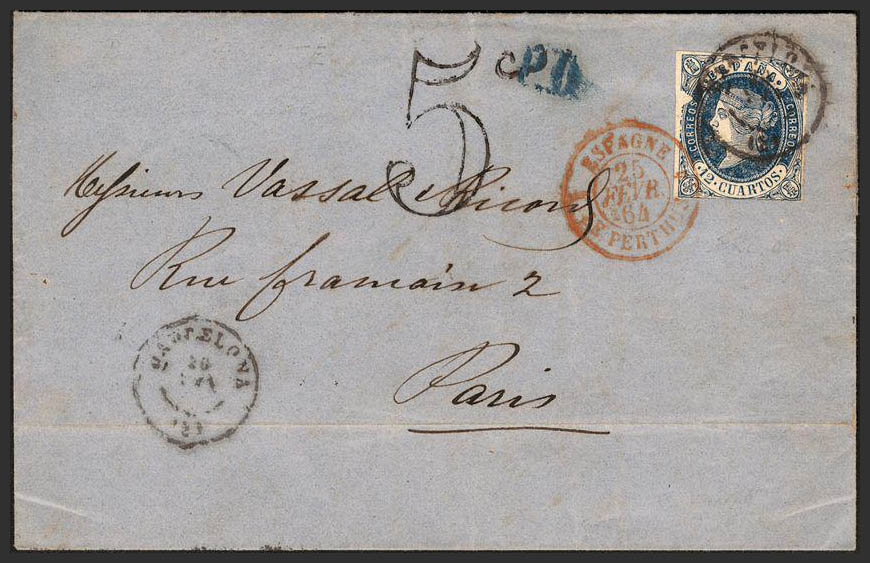 5
P.D
ESPAÑA
CORREOS
CORREO
12 CUARTOS
ESPAGNE
25
FEVR.
64
LE PERTHUS
Messieurs Vassal & Ricono
Rue framain 2
Paris
BARCELONA